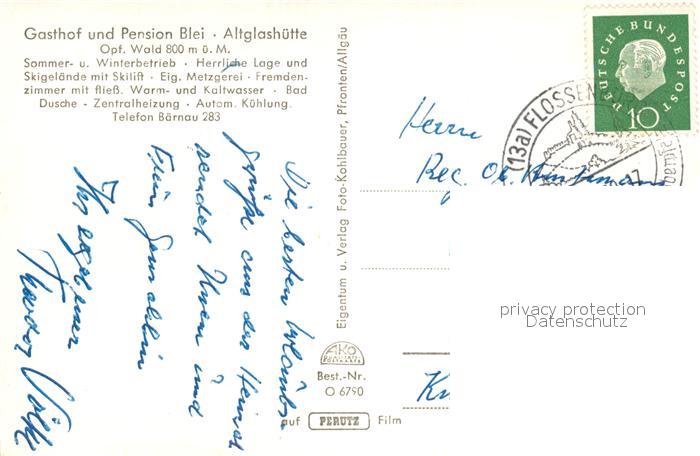 Gasthof und Pension Blei · Altglashütte
Opf. Wald 800 m ü. M.
Sommer- u. Winterbetrieb · Herrliche Lage und
Skigelände mit Skilift · Eig. Metzgerei · Fremden-
zimmer mit fließ. Warm- und Kaltwasser · Bad
Dusche · Zentralheizung · Autom. Kühlung.
Telefon Bärnau 283
Die besten Urlaubs-
grüße aus der Heimat
sendet Ihnen und
Ihrer Gemahlin
Ihr ergebener
Eigentum u. Verlag Foto-Kohlbauer, Pfronten/Allgäu
AKO
QUALITÄTS-
POSTKARTE
Best.-Nr.
O 6790
auf PERUTZ Film
DEUTSCHE BUNDESPOST
10
(13a) FLOSSEN
Herrn
Reg.
privacy protection
Datenschutz